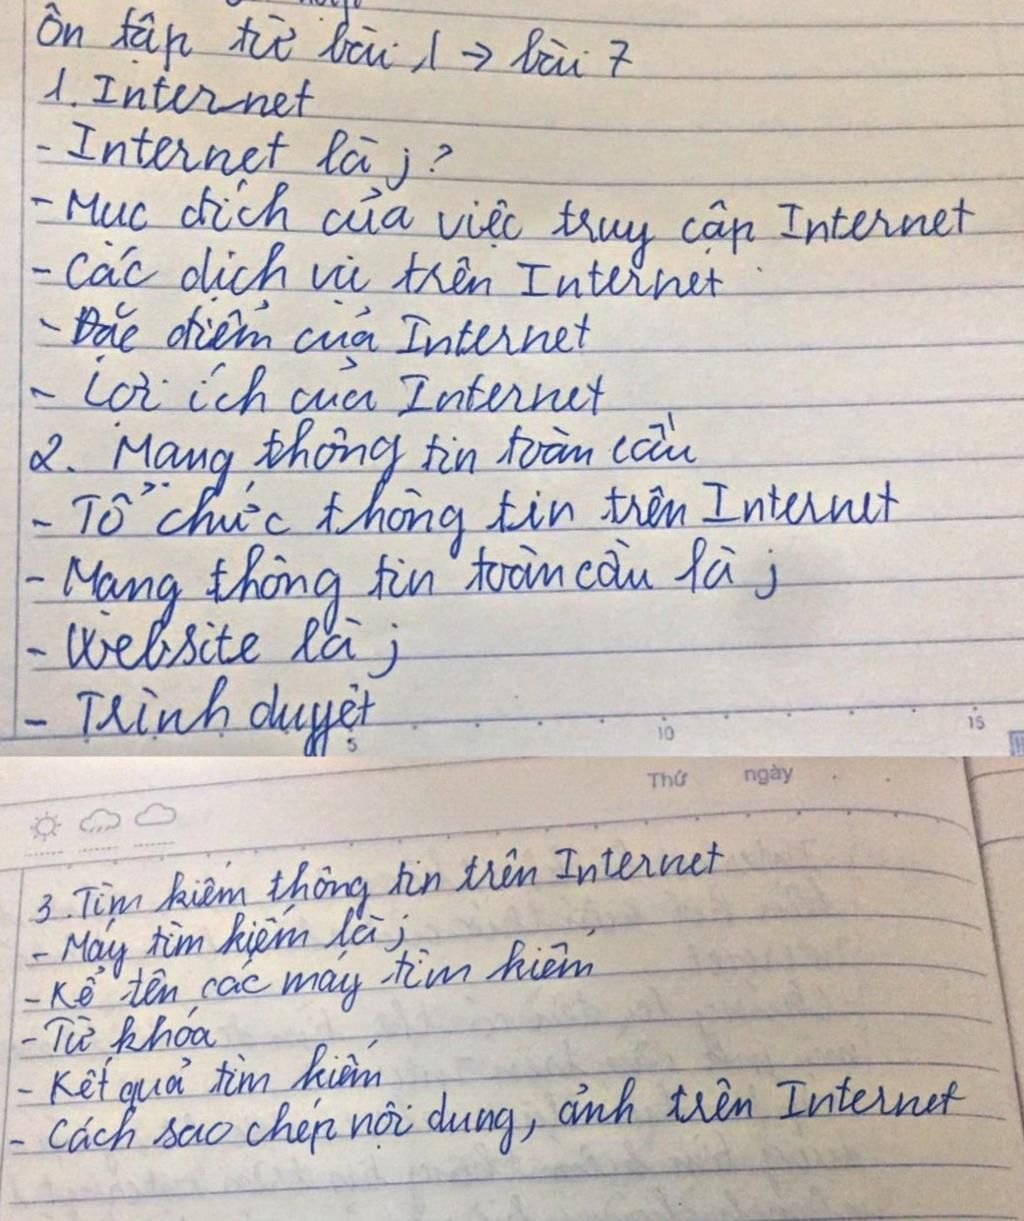 Ôn tập từ bài 1 → bài 7
1. Internet
- Internet là j?
- Mục đích của việc truy cập Internet
- Các dịch vụ trên Internet
- Đặc điểm của Internet
- Lợi ích của Internet
2. Mạng thông tin toàn cầu
- Tổ chức thông tin trên Internet
- Mạng thông tin toàn cầu là j
- Website là j
- Trình duyệt
5 10 15
Thứ ngày
3. Tìm kiếm thông tin trên Internet
- Máy tìm kiếm là j
- Kể tên các máy tìm kiếm
- Từ khóa
- Kết quả tìm kiếm
- Cách sao chép nội dung, ảnh trên Internet